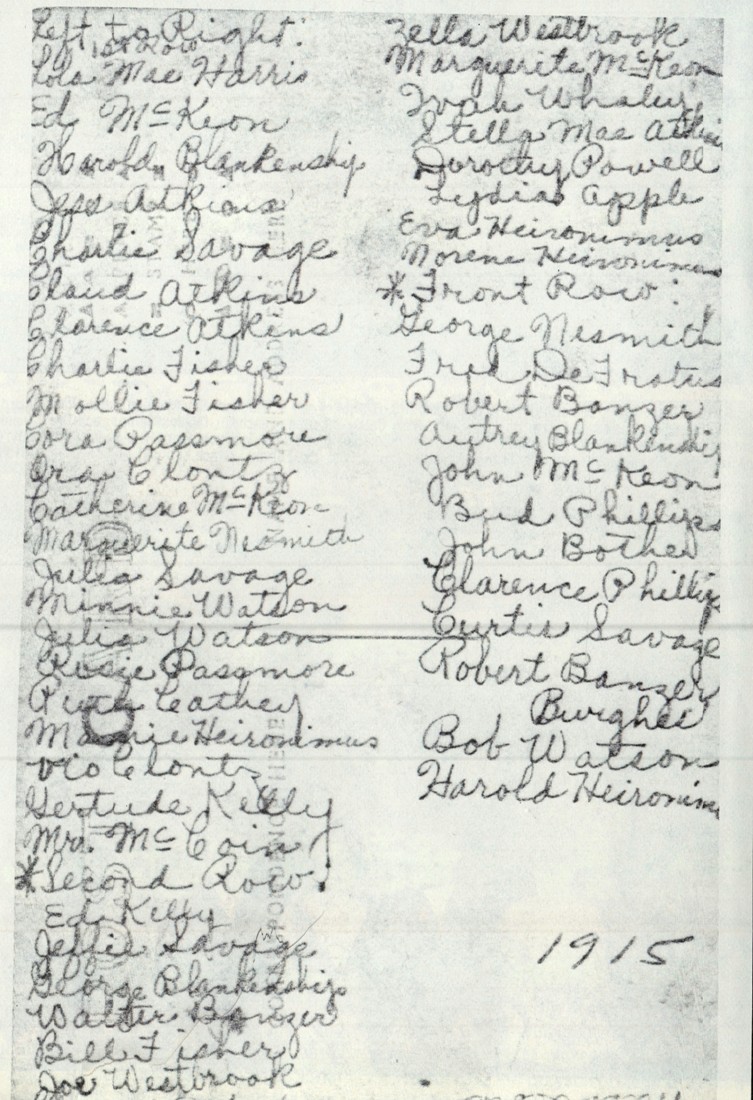 Left to Right:
1st Row
Lola Mae Harris
Ed McKeon
Harold Blankenship
Jess Atkins
Charlie Savage
Claud Atkins
Clarence Atkins
Charlie Fisher
Mollie Fisher
Cora Passmore
Ora Clontz
Catherine McKeon
Marguerite Nesmith
Julia Savage
Minnie Watson
Julia Watson
Rosie Passmore
Ruth Cathey
Mamie Heironimus
Vio Clontz
Gertude Kelly
Mr. McCoin
*Second Row:
Ed Kelly
Savage
George Blankenship
Walter Banzer
Bill Fisher
Joe Westbrook
Zella Westbrook
Marguerite McKeon
Whaley
Stella Mae Atkin
Dorothy Powell
Lydia Apple
Eva Heironimus
Norene Heironimus
*Front Row:
George Nesmith
Fred DeFratus
Robert Banzer
Autrey Blankenship
John McKeon
Bud Phillips
John Bother
Clarence Phillip
Curtis Savage
Robert Banzer
Burghes
Bob Watson
Harold Heironim
1915